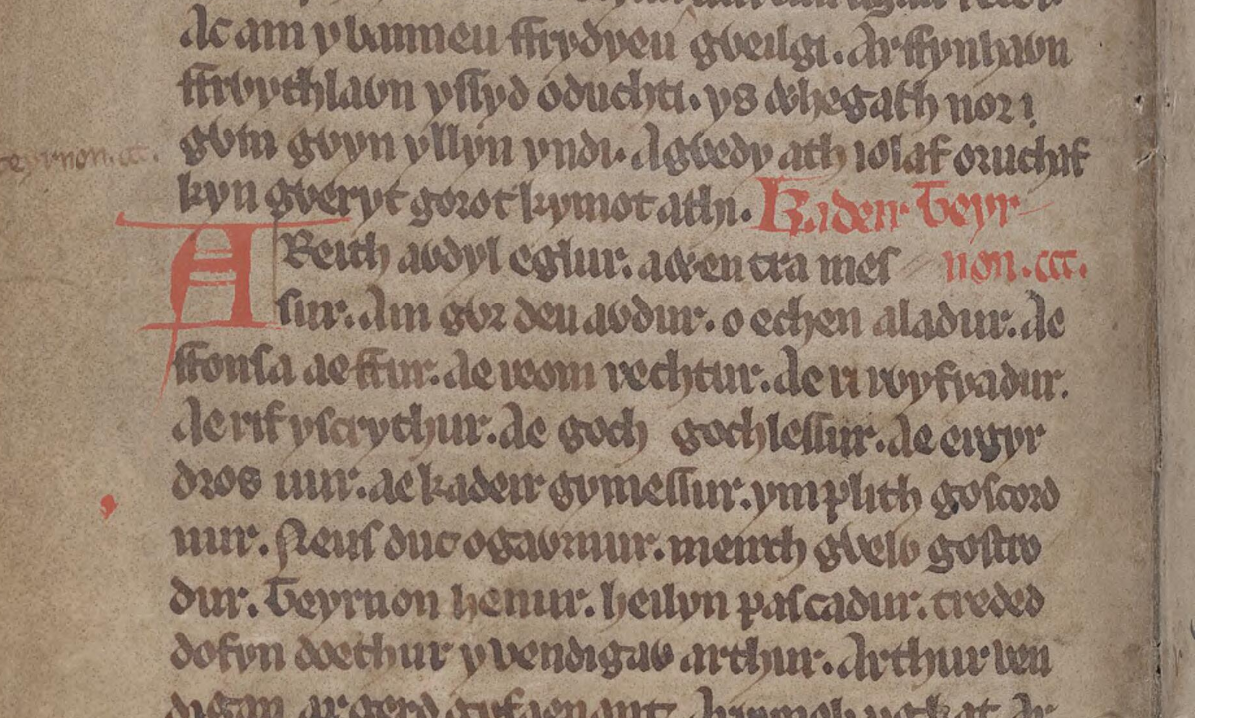 Ac am y banneu ffrydyeu gỽeilgi. Ar ffynhaỽn
ffrỽythlaỽn yssyd oduchti. ys whegach nor
gỽin gỽyn yllyn yndi. Agỽedy ath iolaf oruchaf
teyrnon. ccc.
kyn gỽeryt gorot kymot athi. Kadeir Teyr
non. ccc.
AReith aỽdyl eglur. awen tra mes
sur. Am gỽr deu aỽdur. o echen aladur. Ae
ffonsa ae ffur. Ae reom rechtur. Ae ri rỽyfyadur.
Ae rif yscrythur. Ae goch gochlessur. Ae ergyr
dros uur. Ae kadeir gymessur. ymplith goscord
uur. Neus duc ogaỽrnur. meirch gỽelỽ gostro
dur. Teyrnon henur. heilyn pascadur. treded
dofyn doethur y vendigaỽ arthur. Arthur ven
digan ar gerd gyfaenant.